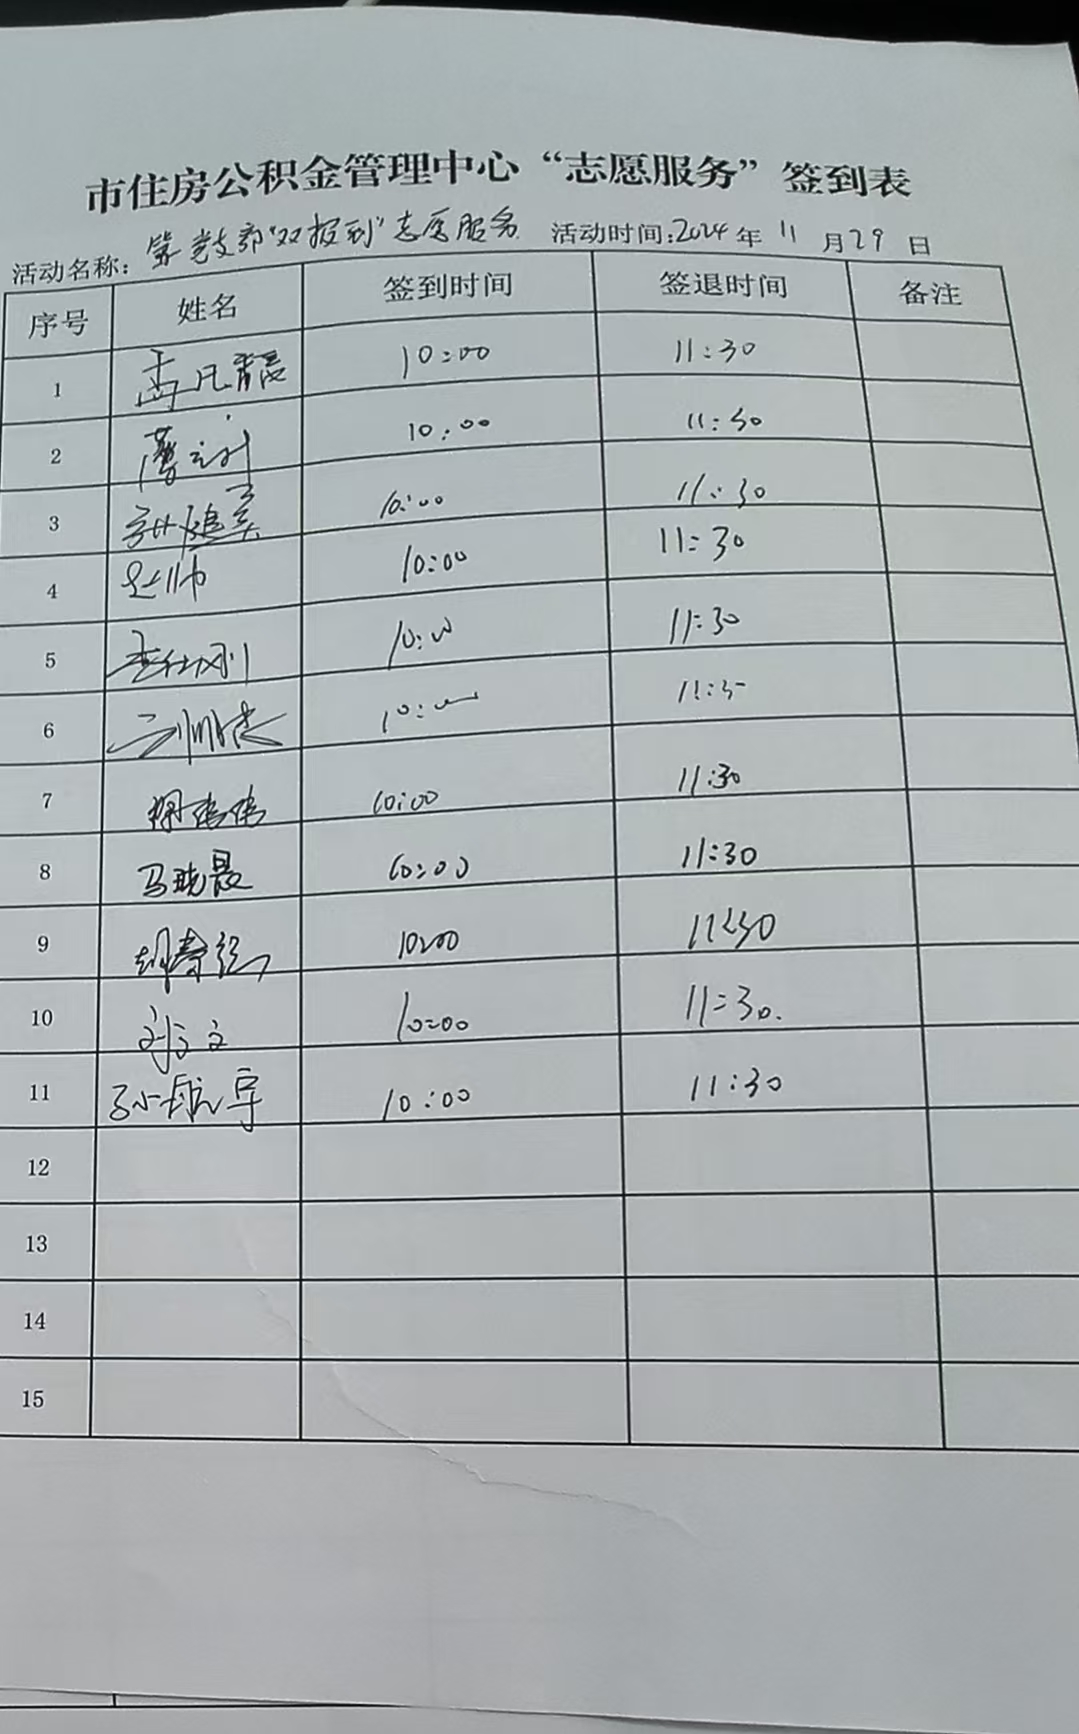 市住房公积金管理中心“志愿服务”签到表
活动名称: 第 党支部“双报到”志愿服务 活动时间:2024年 11 月29 日
序号 姓名 签到时间 签退时间 备注
1 10:00 11:30
2 10:00 11:30
3 10:00 11:30
4 10:00 11:30
5 10:00 11:30
6
7 10:00 11:30
8 马晓晨 10:00 11:30
9 10:00 11:30
10 刘文 10:00 11:30.
11 孙航宇 10:00 11:30
12
13
14
15